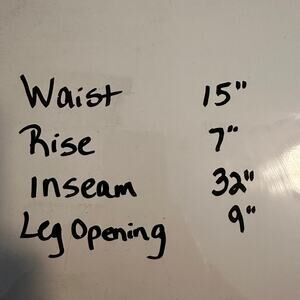 Waist 15"
Rise 7"
Inseam 32"
Leg Opening 9"